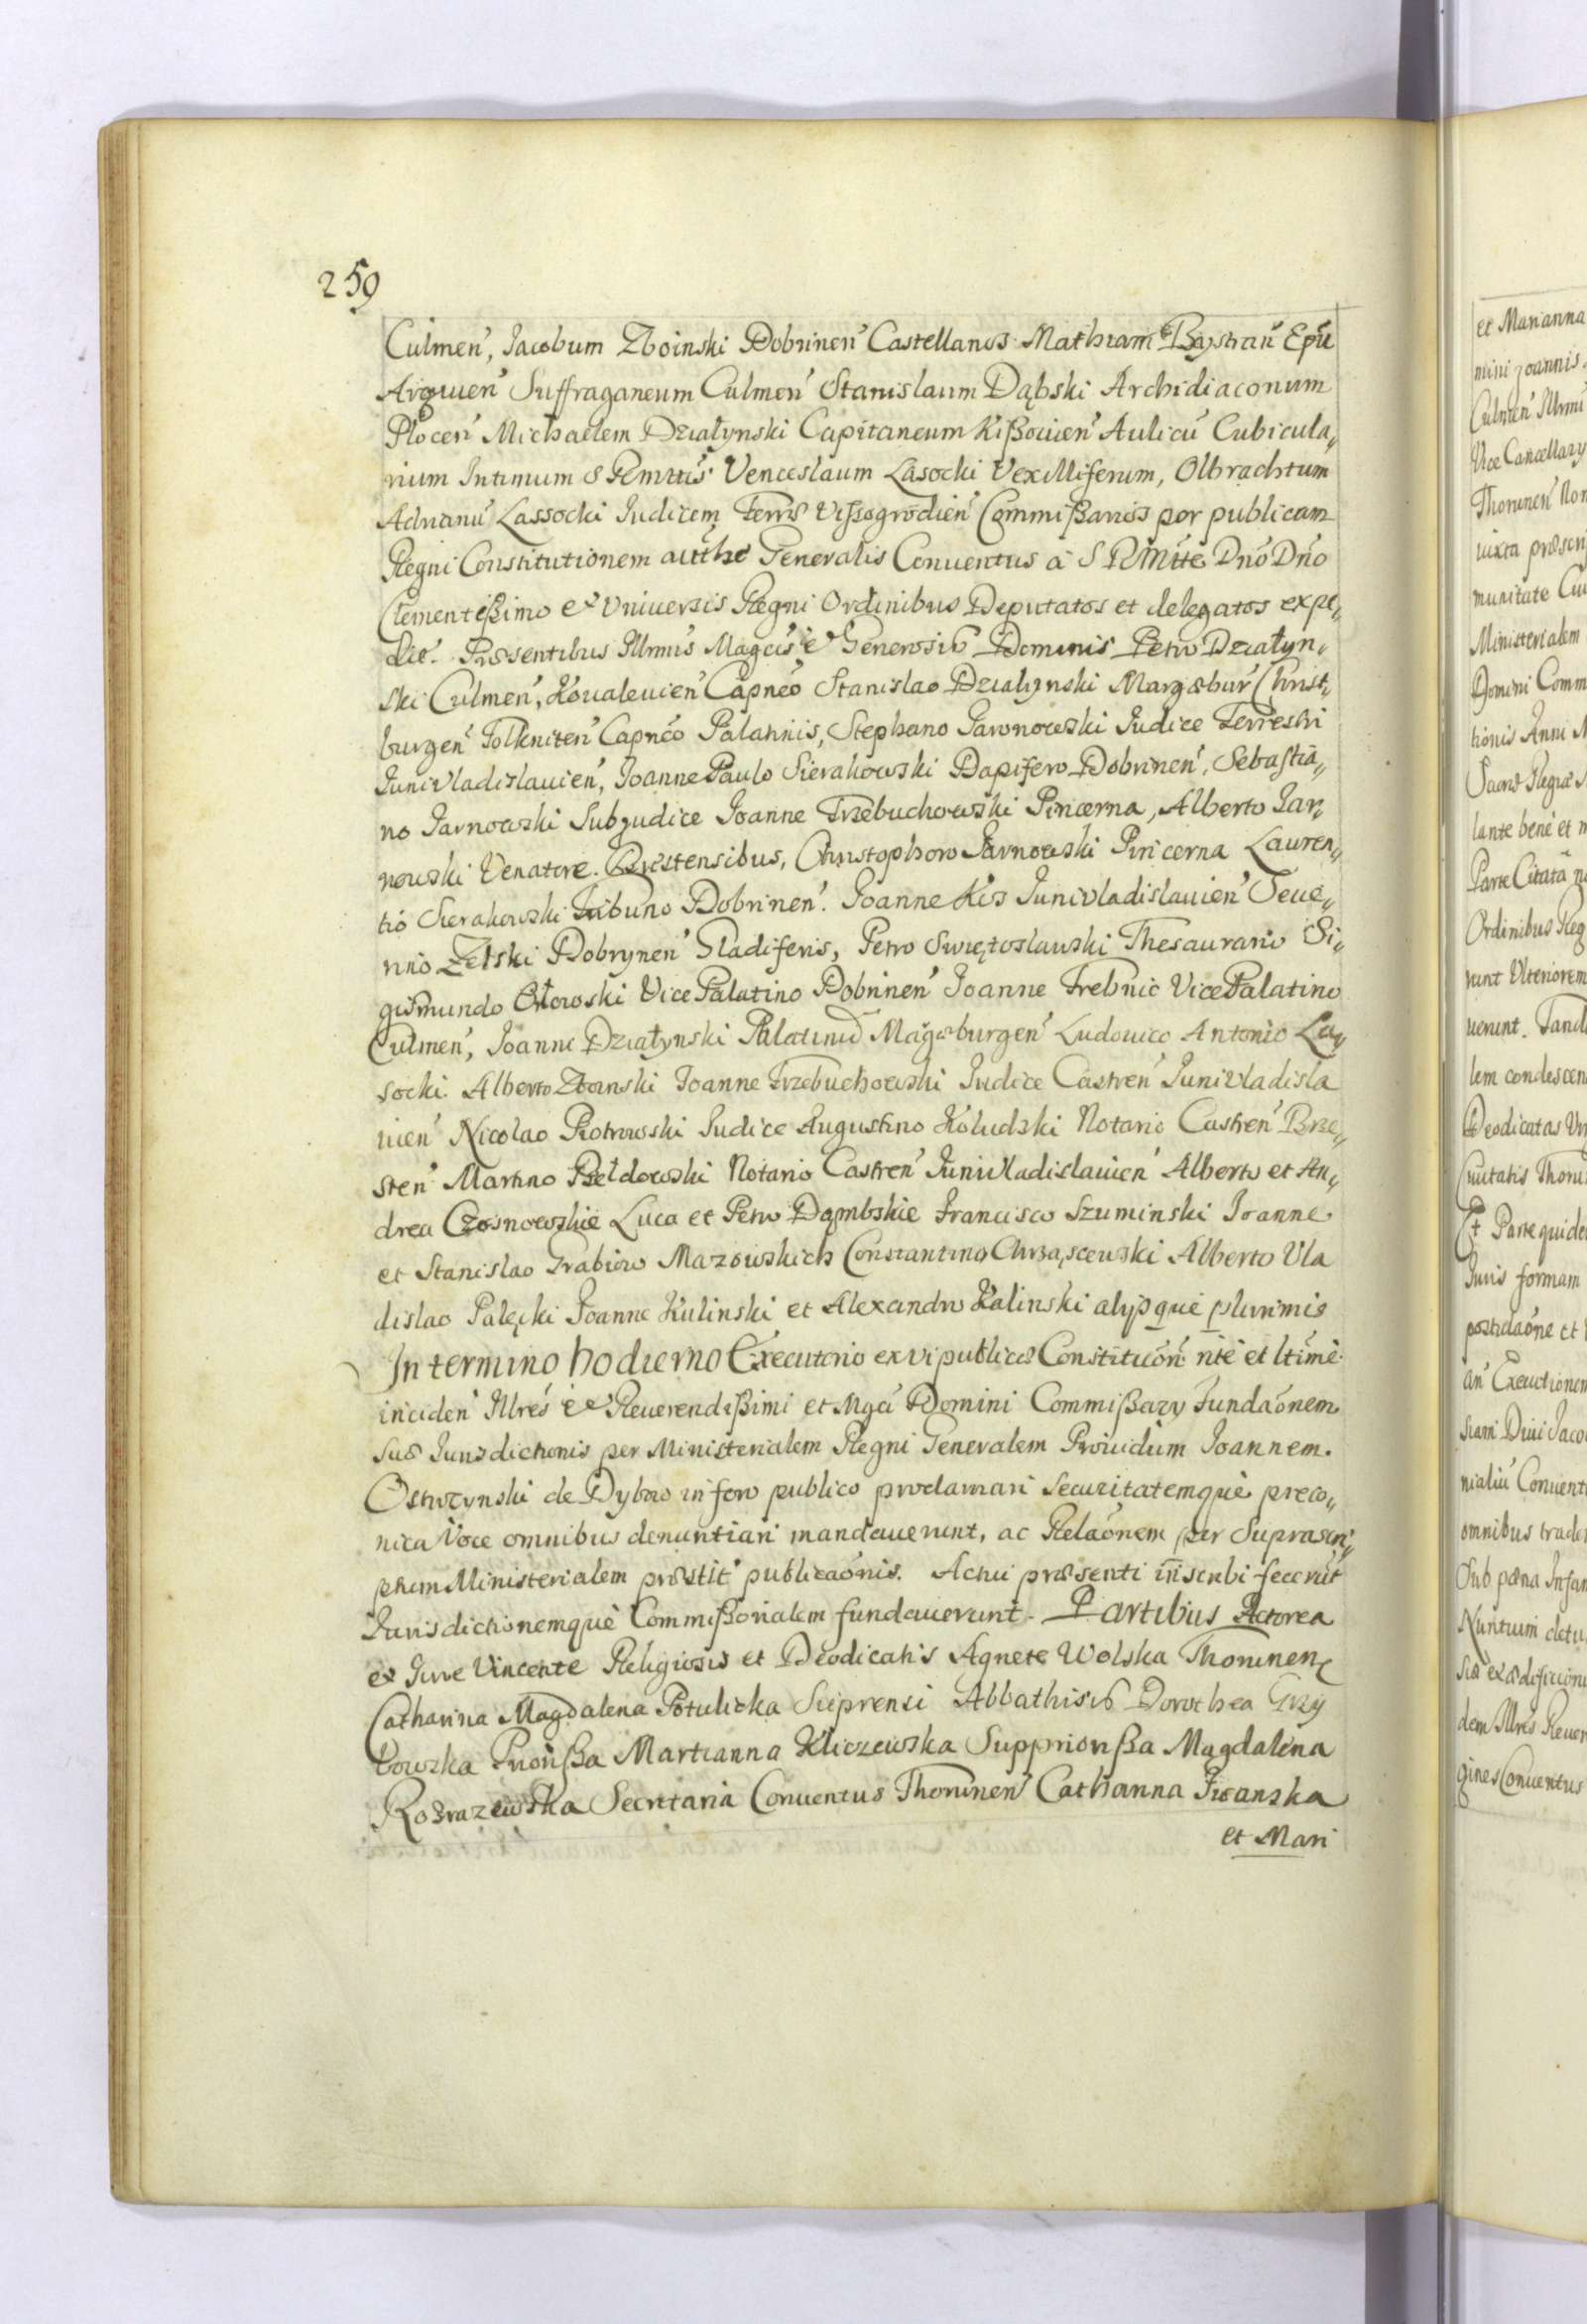 259
Culmen', Jacobum Zboinski Dobrinen' Castellanos Mathiam Bystran Epu
Arquien' Suffraganeum Culmen' Stanislaum Dąbski Archidiaconum
Plocen' Michaelem Działynski Capitaneum Kißouien' Aulicu Cubicula„
rium Intimum S Rmttis Venceslaum Lasocki Vexilliferum, Olbrachtum
Adrianu Lassocki Judicem Terræ Vißogrodien' Commißarios per publicam
Regni Constitutionem autthe Generalis Conuentus a S Rmtte Dno Dno
Clementißimo et Vniuersis Regni Ordinibus Deputatos et delegatos expe„
die. Præsentibus Illrmis Magcis et Generosis Dominis Petro Działyn„
ski Culmen', Koualeuien' Capneo Stanislao Działynski Margæbur Christ„
burgen' Tolkniten' Capneo Palatinis, Stephano Jaronowski Judice Terrestri
Junivladislauien', Joanne Paulo Sierakowski Dapifero Dobrinen', Sebastia„
no Jarnowski Subjudice Joanne Trzebuchowski Pincerna, Alberto Jar„
nowski Venatore. Brestensibus, Christophoro Jarnowski Pincerna Lauren„
tio Sierakowski Tribuno Dobrinen'. Joanne Kis Junivladislauien' Seue„
rino Zelski Dobrynen' Gladiferis, Petro Swiętoslauski Thesaurario Si„
gismundo Orłowski Vice Palatino Dobrinen' Joanne Trebnic Vice Palatino
Culmen', Joanne Działynski Palatinid Magæburgen' Ludouico Antonio La„
socki. Alberto Zboinski Joanne Trzebuchowski Judice Castren' Junivladisla
uien' Nicolao Piotrowski Judice Augustino Koludzki Notario Castren' Brze„
sten' Martino Bełdowski Notario Castren' Junivladislauien' Alberto et An„
drea Czosnowskie Luca et Petro Dąmbskie Francisco Szuminski Joanne
et Stanislao Grabiow Mazowskich Constantino Chrząscewski Alberto Vla
dislao Palęcki Joanne Kulinski et Alexandro Kalinski alijsque plurimis
In termino hodierno Executorio ex vi publicæ Constitucon' nte et ltime
inciden' Illres et Reuerendißimi et Mgci Domini Commißary Fundaonem
suæ Jurisdictionis per Ministerialem Regni Generalem Prouidum Joannem
Ostrozynski de Dybow in foro publico proclamari securitatemque preco„
nica Voce omnibus denuntiari mandauerunt, ac Relaonem per Suprascri„
ptum Ministerialem præstit publicaonis. Actui præsenti inscribi fecerut
Jurisdictionemque Commißorialem fundauerunt. Partibus Actorea
et Jure Vincente Religiosis et Deodicatis Agnete Wolska Thorunen
Catharina Magdalena Potulicka Sieprensi Abbathisis Dorothea Grzy
bowska Priorißa Martianna Kliczewska Suppriorißa Magdalena
Rozrazewska Secretaria Conuentus Thorunen' Catharina Iwanska
et Mari
et Marianna
mini Joannis
Culmen' Illrmi
Vice Cancellary
Thorunen' Non
iuxta præsen
munitate Cui
Ministerialem
Domini Comm
tionis Anni M
Sacræ Regiæ
lante bene et
Parte Citata
Ordinibus Reg
runt Vlteriorem
uerunt. Tand
lem condescen
Deodicatas Vir
Ciuitatis Thoru
Et Parte quide
Juris formam
postulaone et
an' Executionem
siam Diui Jaco
nialiu Conuent
omnibus trade
Sub pœna Infam
Nuntium detu
dem Illres Reuer
gines Conuentus